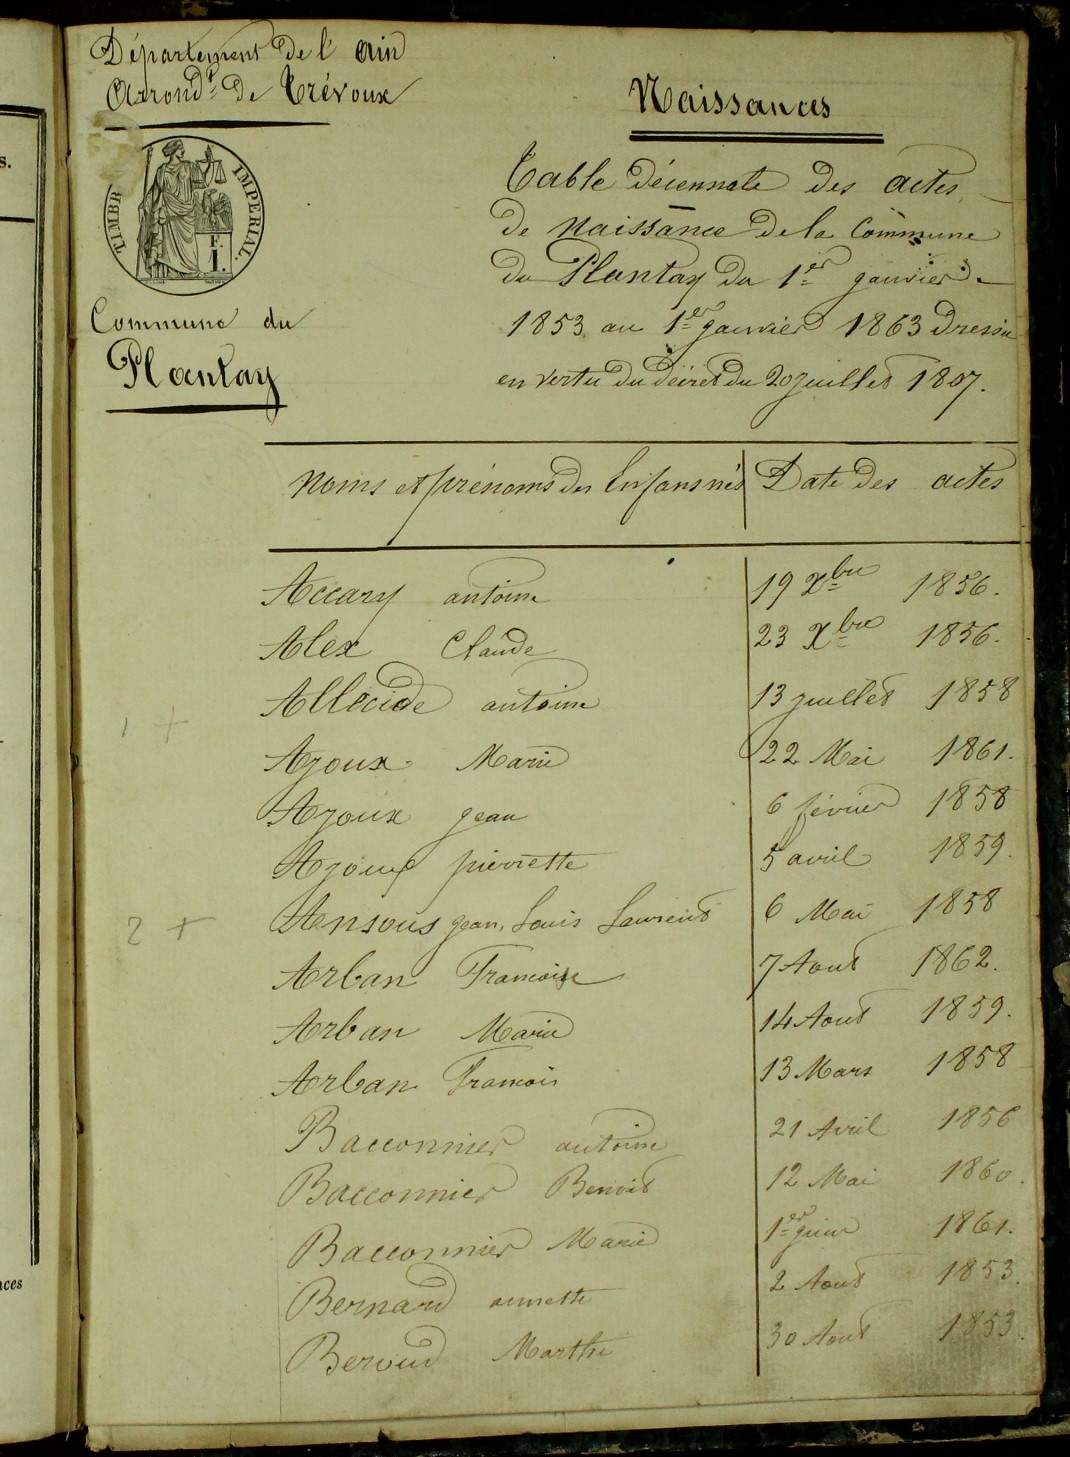 Département de l'ain
Arrond.t de Trévoux
TIMBR IMPERIAL.
F.
1.
Commune du
Plantay
Naissances
Table décennale des actes
de Naissance de la Commune
du Plantay du 1er janvier
1853 au 1er janvier 1863 Dressée
en vertu du décret du 20 juillet 1807.
Noms et prénoms des Enfans nés Date des actes
Accary antoine 19 Xbre 1856.
Alex Claude 23 Xbre 1856.
Allacide antoine 13 juillet 1858
1 +
Ajoux Marie 22 Mai 1861.
Ajoux jean 6 février 1858
Ajoux pierrette 5 avril 1859.
2 + Ansous jean, Louis Laurent 6 Mai 1858
Arban Francoise 7 Aout 1862.
Arban Marie 14 Aout 1859.
Arban Francois 13 Mars 1858
Bacconnier antoine 21 Avril 1856
Bacconnier Benoit 12 Mai 1860.
Bacconnier Marie 1er juin 1861.
Bernard annette 2 Aout 1853.
Beroud Marthe 30 Aout 1853.
s.
nces